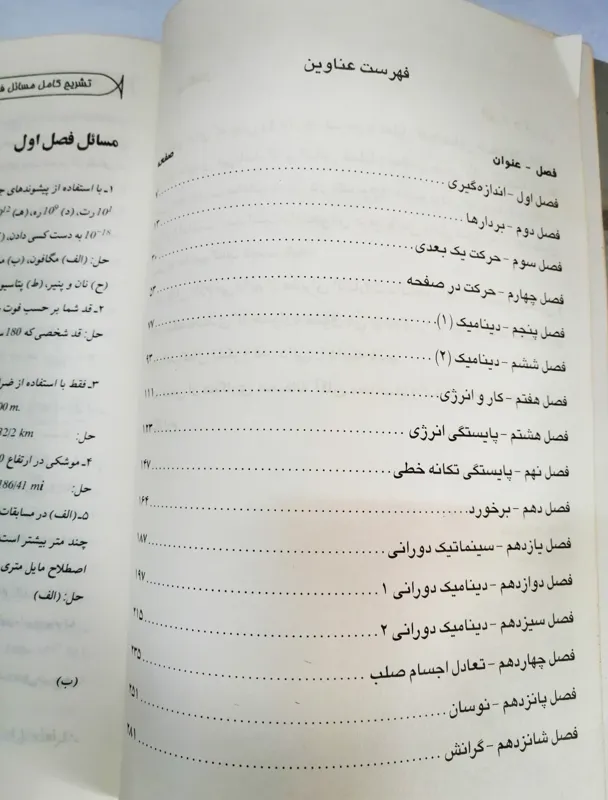 فهرست عناوین
فصل - عنوان صفحه
فصل اول - اندازه‌گیری
فصل دوم - بردارها ۱۳
فصل سوم - حرکت یک بعدی
فصل چهارم - حرکت در صفحه ۵۳
فصل پنجم - دینامیک (۱)
فصل ششم - دینامیک (۲) ۹۳
فصل هفتم - کار و انرژی ۱۱۱
فصل هشتم - پایستگی انرژی ۱۲۳
فصل نهم - پایستگی تکانه خطی ۱۴۷
فصل دهم - برخورد ۱۶۴
فصل یازدهم - سینماتیک دورانی ۱۸۷
فصل دوازدهم - دینامیک دورانی ۱ ۱۹۷
فصل سیزدهم - دینامیک دورانی ۲ ۲۱۵
فصل چهاردهم - تعادل اجسام صلب ۲۳۵
فصل پانزدهم - نوسان ۲۵۱
فصل شانزدهم - گرانش ۲۸۱
تشریح کامل مسائل
مسائل فصل اول
۱ـ با استفاده از پیشوندهای
رت، (د) 10⁹ره، (هـ) 10¹²
10⁻¹⁸ به دست کسی دادن،
حل: (الف) مگافون، (ب)
(ح) نان و پنیر، (ط)
۲ـ قد شما بر حسب فوت
حل: قد شخصی که 180
۳ـ فقط با استفاده از
00 m.
حل: 32/2 km
۴ـ موشکی در ارتفاع
حل: 186/41 mi
۵ـ (الف) در مسابقات
چند متر بیشتر است
اصطلاح مایل متری
حل: (الف)
(ب)